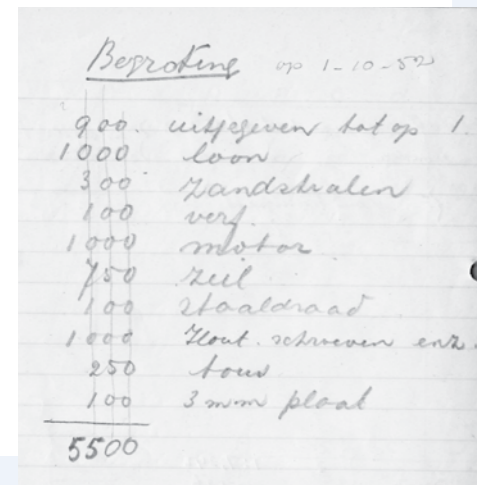 Begroting op 1-10-52
900. uitgegeven tot op 1.
1000 loon
300 zandstralen
100 verf.
1000 motor
750 zeil
100 staaldraad
1000 Hout. schroeven enz.
250 touw
100 3 mm plaat
5500